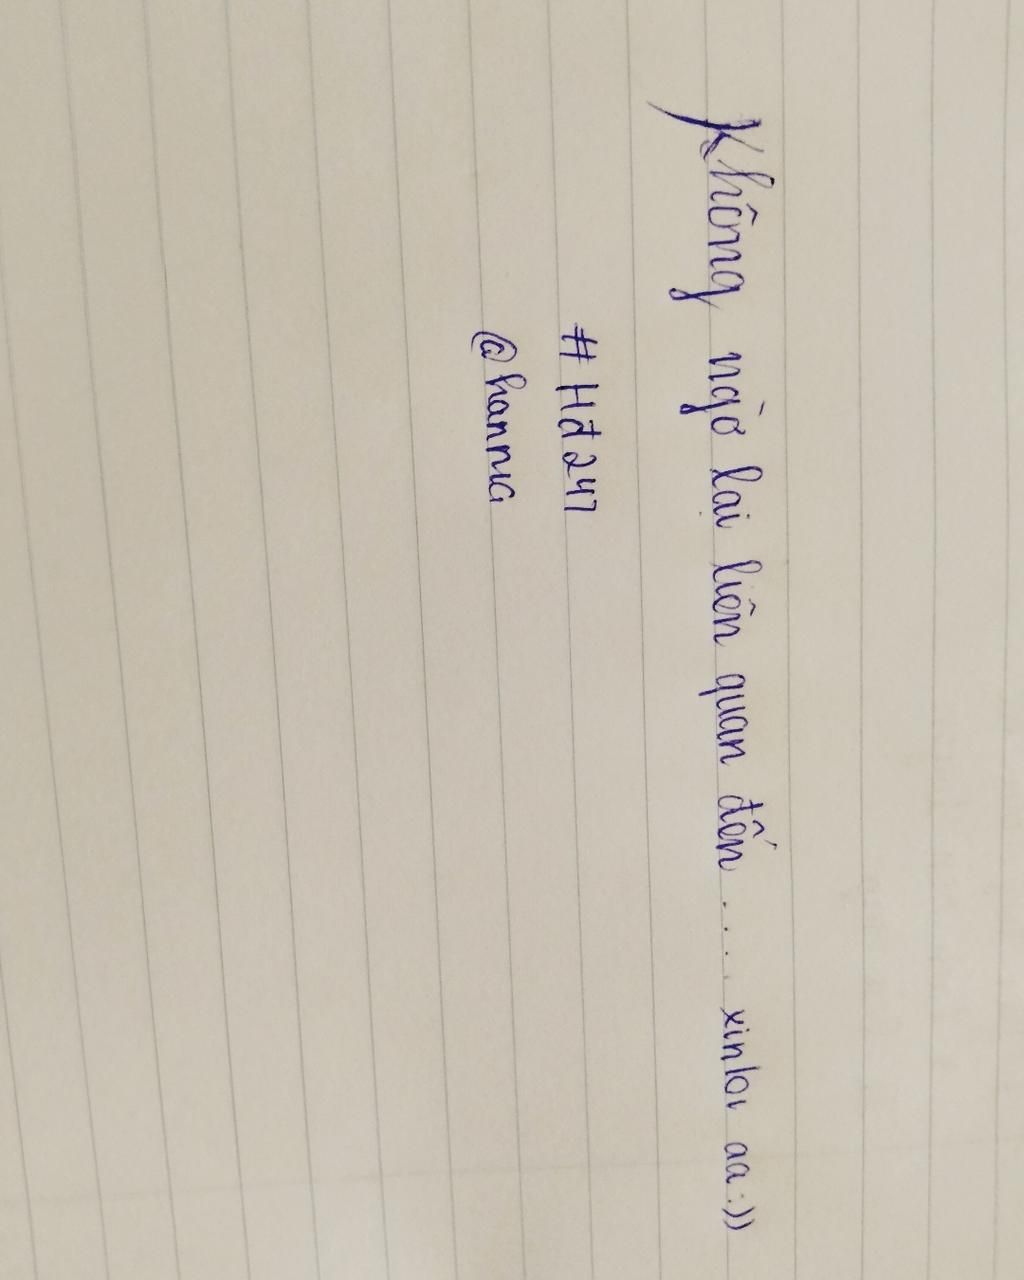 Không ngờ lại liên quan đến .... xinloi aa:))
#Hđ247
@hanna